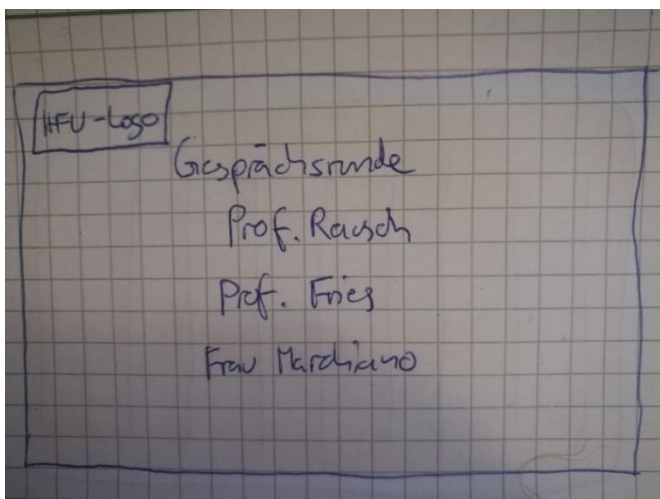 HFU-Logo
Gesprächsrunde
Prof. Rausch
Prof. Fries
Frau Marchiano